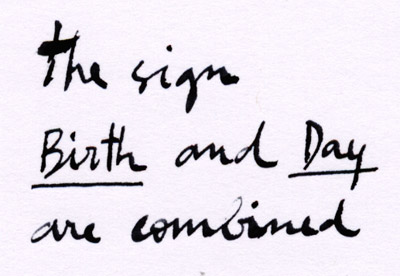 the sign
Birth and Day
are combined